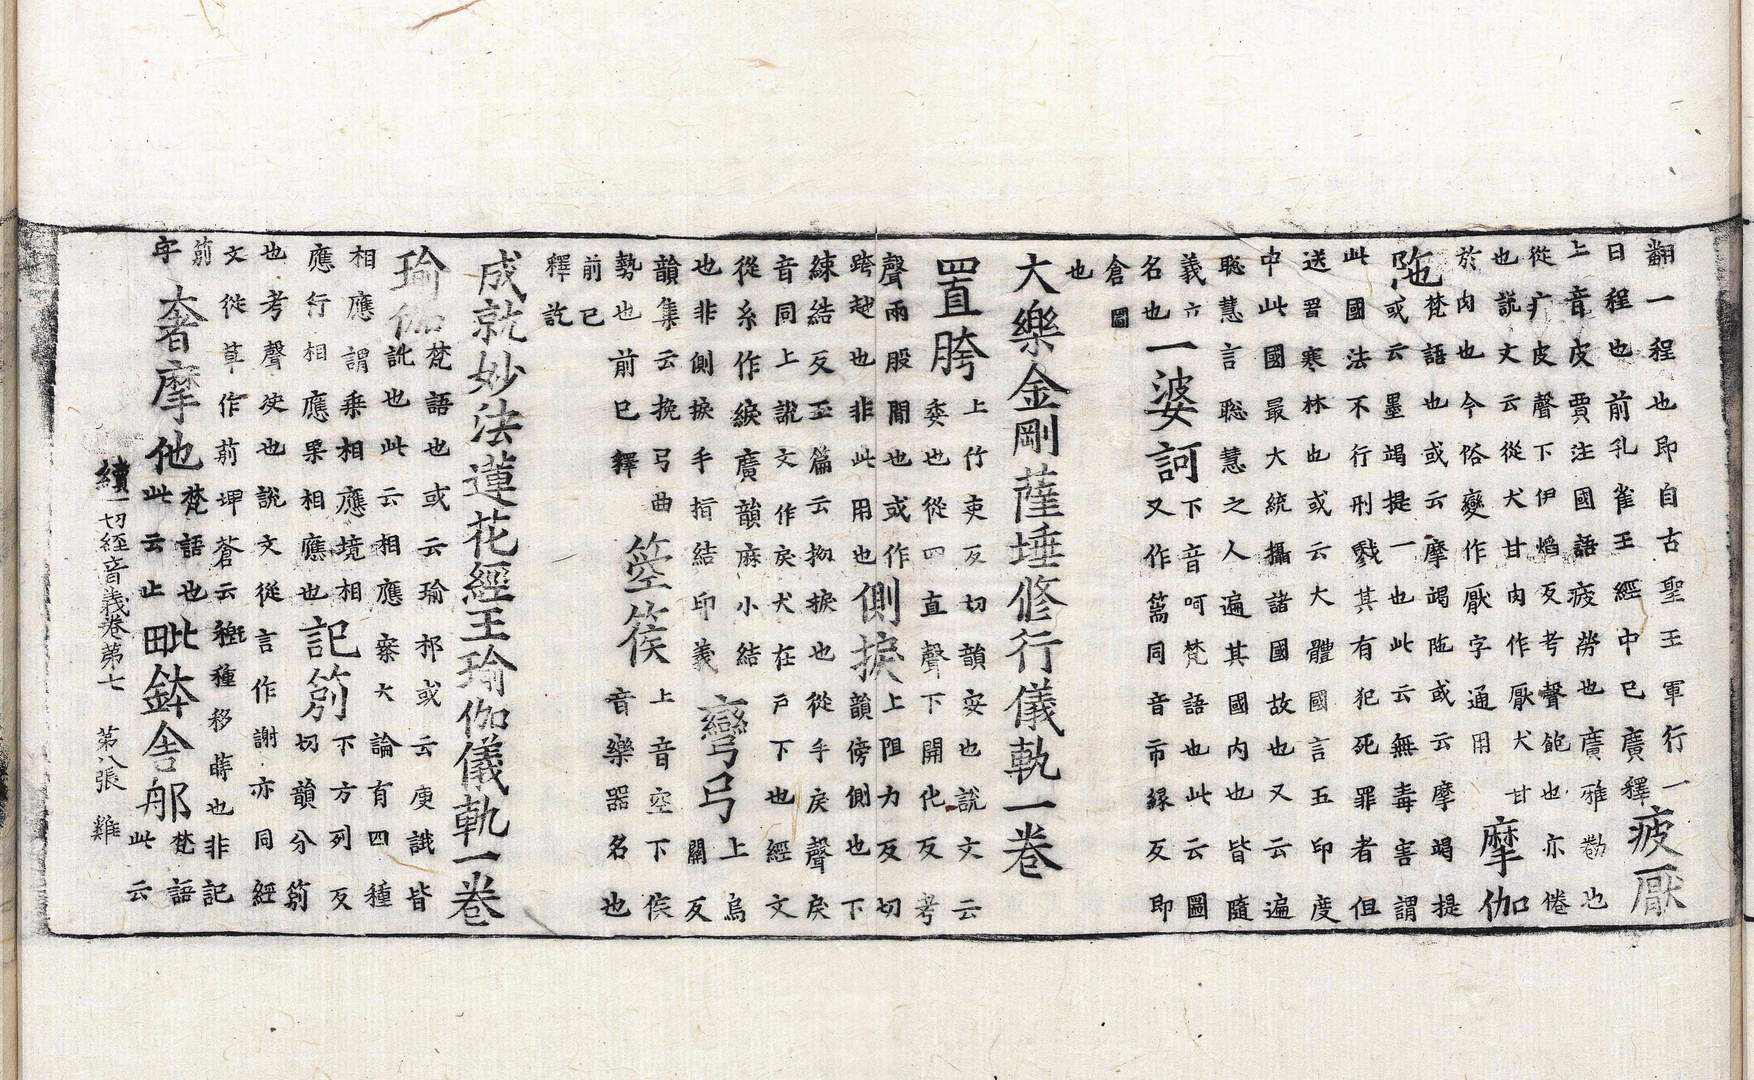 翻一程也即自古聖王軍行一
日程也前孔雀王經中已廣釋
疲厭
上音皮賈注國語疲勞也廣雅勸也
從疒皮聲下伊焰反考聲飽也亦倦
也說文云從犬甘肉作厭犬甘
於肉也今俗變作厭字通用
摩伽
陁
梵語也或云摩竭陁或云摩竭提
或云墨竭提一也此云無毒害謂
此國法不行刑戮其有犯死罪者但
送置寒林也或云大體國言五印度
中此國最大統攝諸國故也又云遍
聡慧言聡慧之人遍其國內也皆隨
義六
名也
一婆訶
下音呵梵語也此云圖
又作篅同音市緣反即
倉圖
也
大樂金剛薩埵修行儀軌一卷
置胯
上竹吏反切韻安也說文云
也從四直聲下開化反考
聲兩股間也或作
跨越也非此用也
側捩
上阻力反切韻傍側也下
練結反玉篇云拗捩也從手戾聲戾
音同上說文作戾犬在戶下也經文
從糸作綟廣韻麻小結
也非側捩手指結印義
彎弓
上烏
關反
韻集云挽弓曲
勢也前已釋
箜篌
上音空下侯
音樂器名也
前已
釋訖
成就妙法蓮花經王瑜伽儀軌一卷
瑜伽
梵語也或云瑜祁或云庾誐皆
訛也此云相應案大論有四種
相應謂乘相應境相
應行相應果相應也
記莂
下方列反
切韻分莂
也考聲使也說文從言作謝亦同經
文從草作莂埤蒼云種移蒔也非記
莂
字
奢摩他
梵語也
此云止
毗鉢舍那
梵語
此云
續一切經音義卷第七 第八張 雞